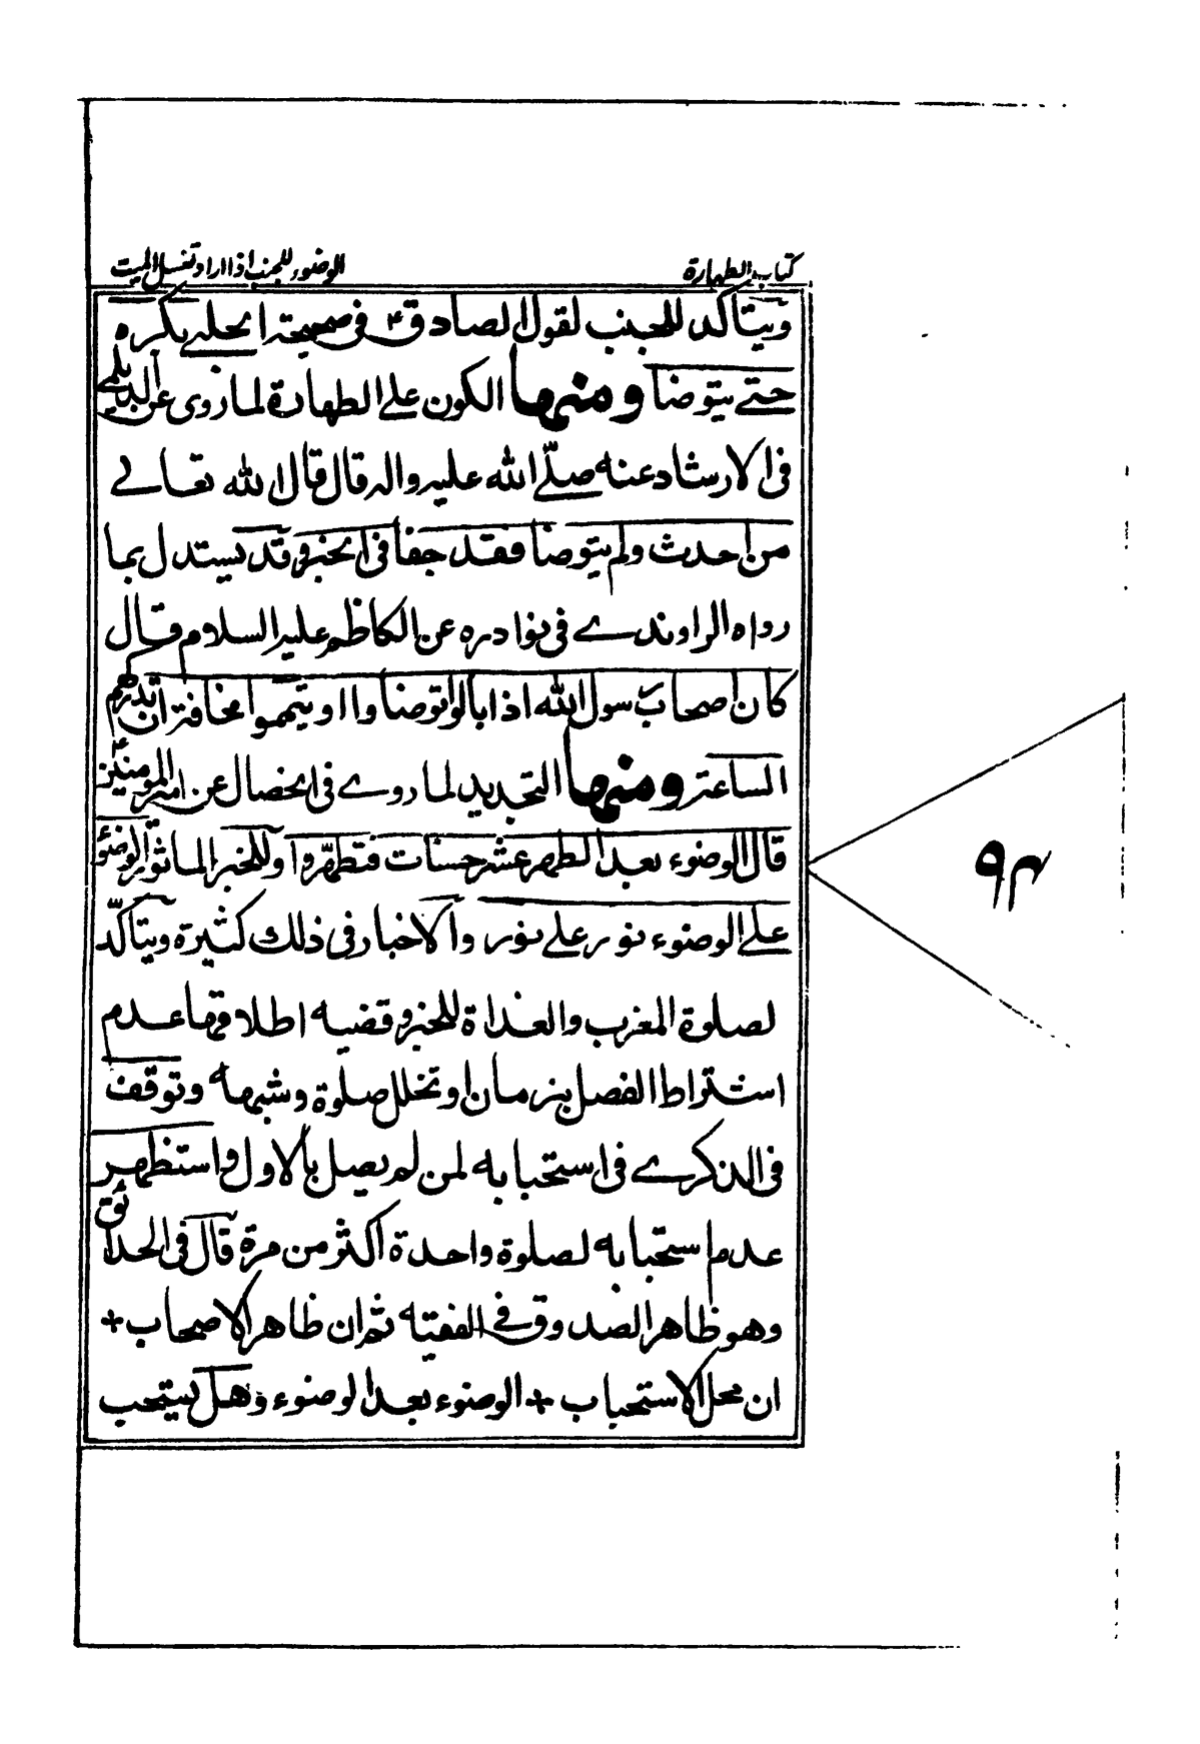 كتاب الطهارة
الوضوء للجنب اذا اراد تغسيل الميت
ويتأكد للجنب لقول الصادق ع في صحيحة الحلبي يكره
حتى يتوضأ ومنها الكون على الطهارة لما روى عن الديلمي
في الارشاد عنه صلّى الله عليه واله قال قال الله تعالى
من احدث ولم يتوضأ فقد جفانى الخبر وقد يستدل بما
رواه الراوندي في نوادره عن الكاظم عليه السلام قال
كان اصحاب رسول الله اذا بالوا توضأوا او يتيمموا مخافة ان تدركهم
الساعة ومنها التجديد لما روى في الخصال عن امير المؤمنين ع
قال الوضوء بعد الطهر عشر حسنات فتطهّروا وللخبر الماثور الوضوء
على الوضوء نور على نور والاخبار في ذلك كثيرة ويتأكّد
لصلوة المغرب والغداة للخبر وقضيه اطلاقها عدم
اشتراط الفصل بزمان او تخلل صلوة وشبهه وتوقف
في الذكرى في استحبابه لمن لم يصل بالاول واستظهر
عدم استحبابه لصلوة واحدة اكثر من مرة قال في الحدائق
وهو ظاهر الصدوق في الفقيه ثم ان ظاهر الاصحاب +
ان محل الاستحباب + الوضوء بعد الوضوء وهل يستحب
۹۴